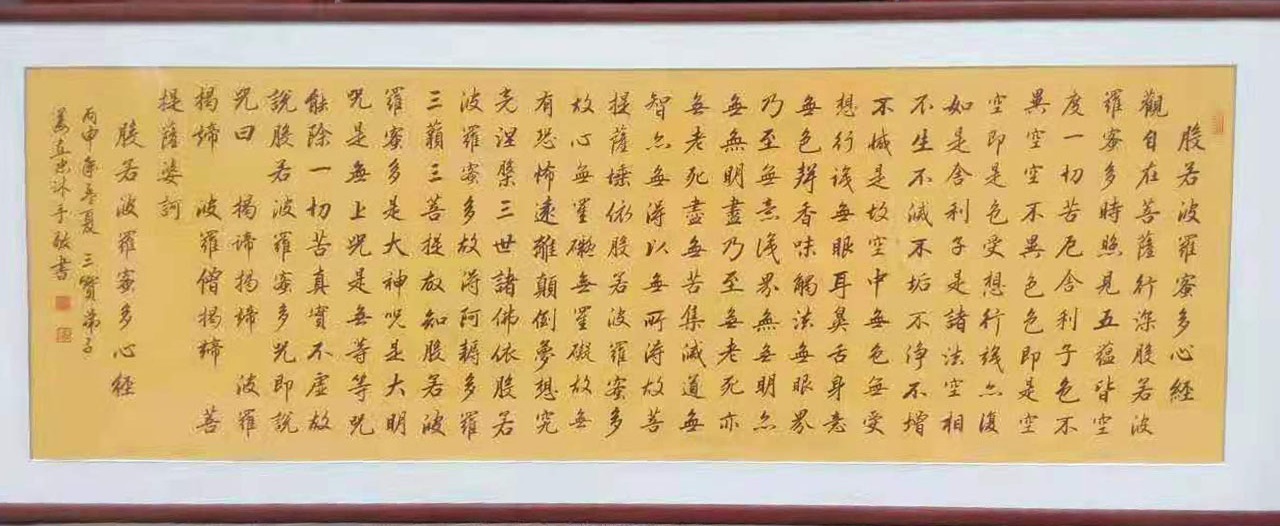 般若波羅蜜多心經
觀自在菩薩行深般若波
羅蜜多時照見五蘊皆空
度一切苦厄舍利子色不
異空空不異色色即是空
空即是色受想行識亦復
如是舍利子是諸法空相
不生不滅不垢不淨不增
不減是故空中無色無受
想行識無眼耳鼻舌身意
無色聲香味觸法無眼界
乃至無意識界無無明亦
無無明盡乃至無老死亦
無老死盡無苦集滅道無
智亦無得以無所得故菩
提薩埵依般若波羅蜜多
故心無罣礙無罣礙故無
有恐怖遠離顛倒夢想究
竟涅槃三世諸佛依般若
波羅蜜多故得阿耨多羅
三藐三菩提故知般若波
羅蜜多是大神咒是大明
咒是無上咒是無等等咒
能除一切苦真實不虛故
說般若波羅蜜多咒即說
咒曰 揭諦揭諦 波羅
揭諦 波羅僧揭諦 菩
提薩婆訶
般若波羅蜜多心經
丙申年孟夏 三寶弟子
沐手敬書